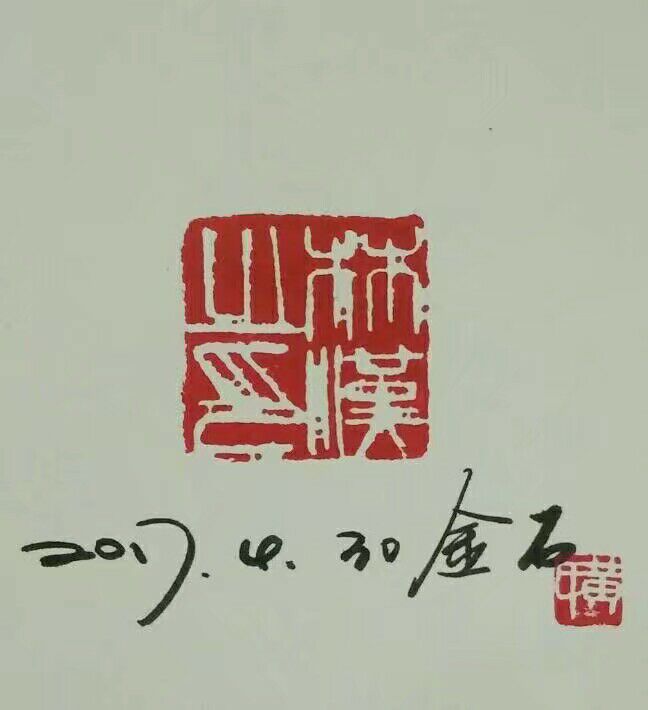 林漢
之印
2017.4.30 金石